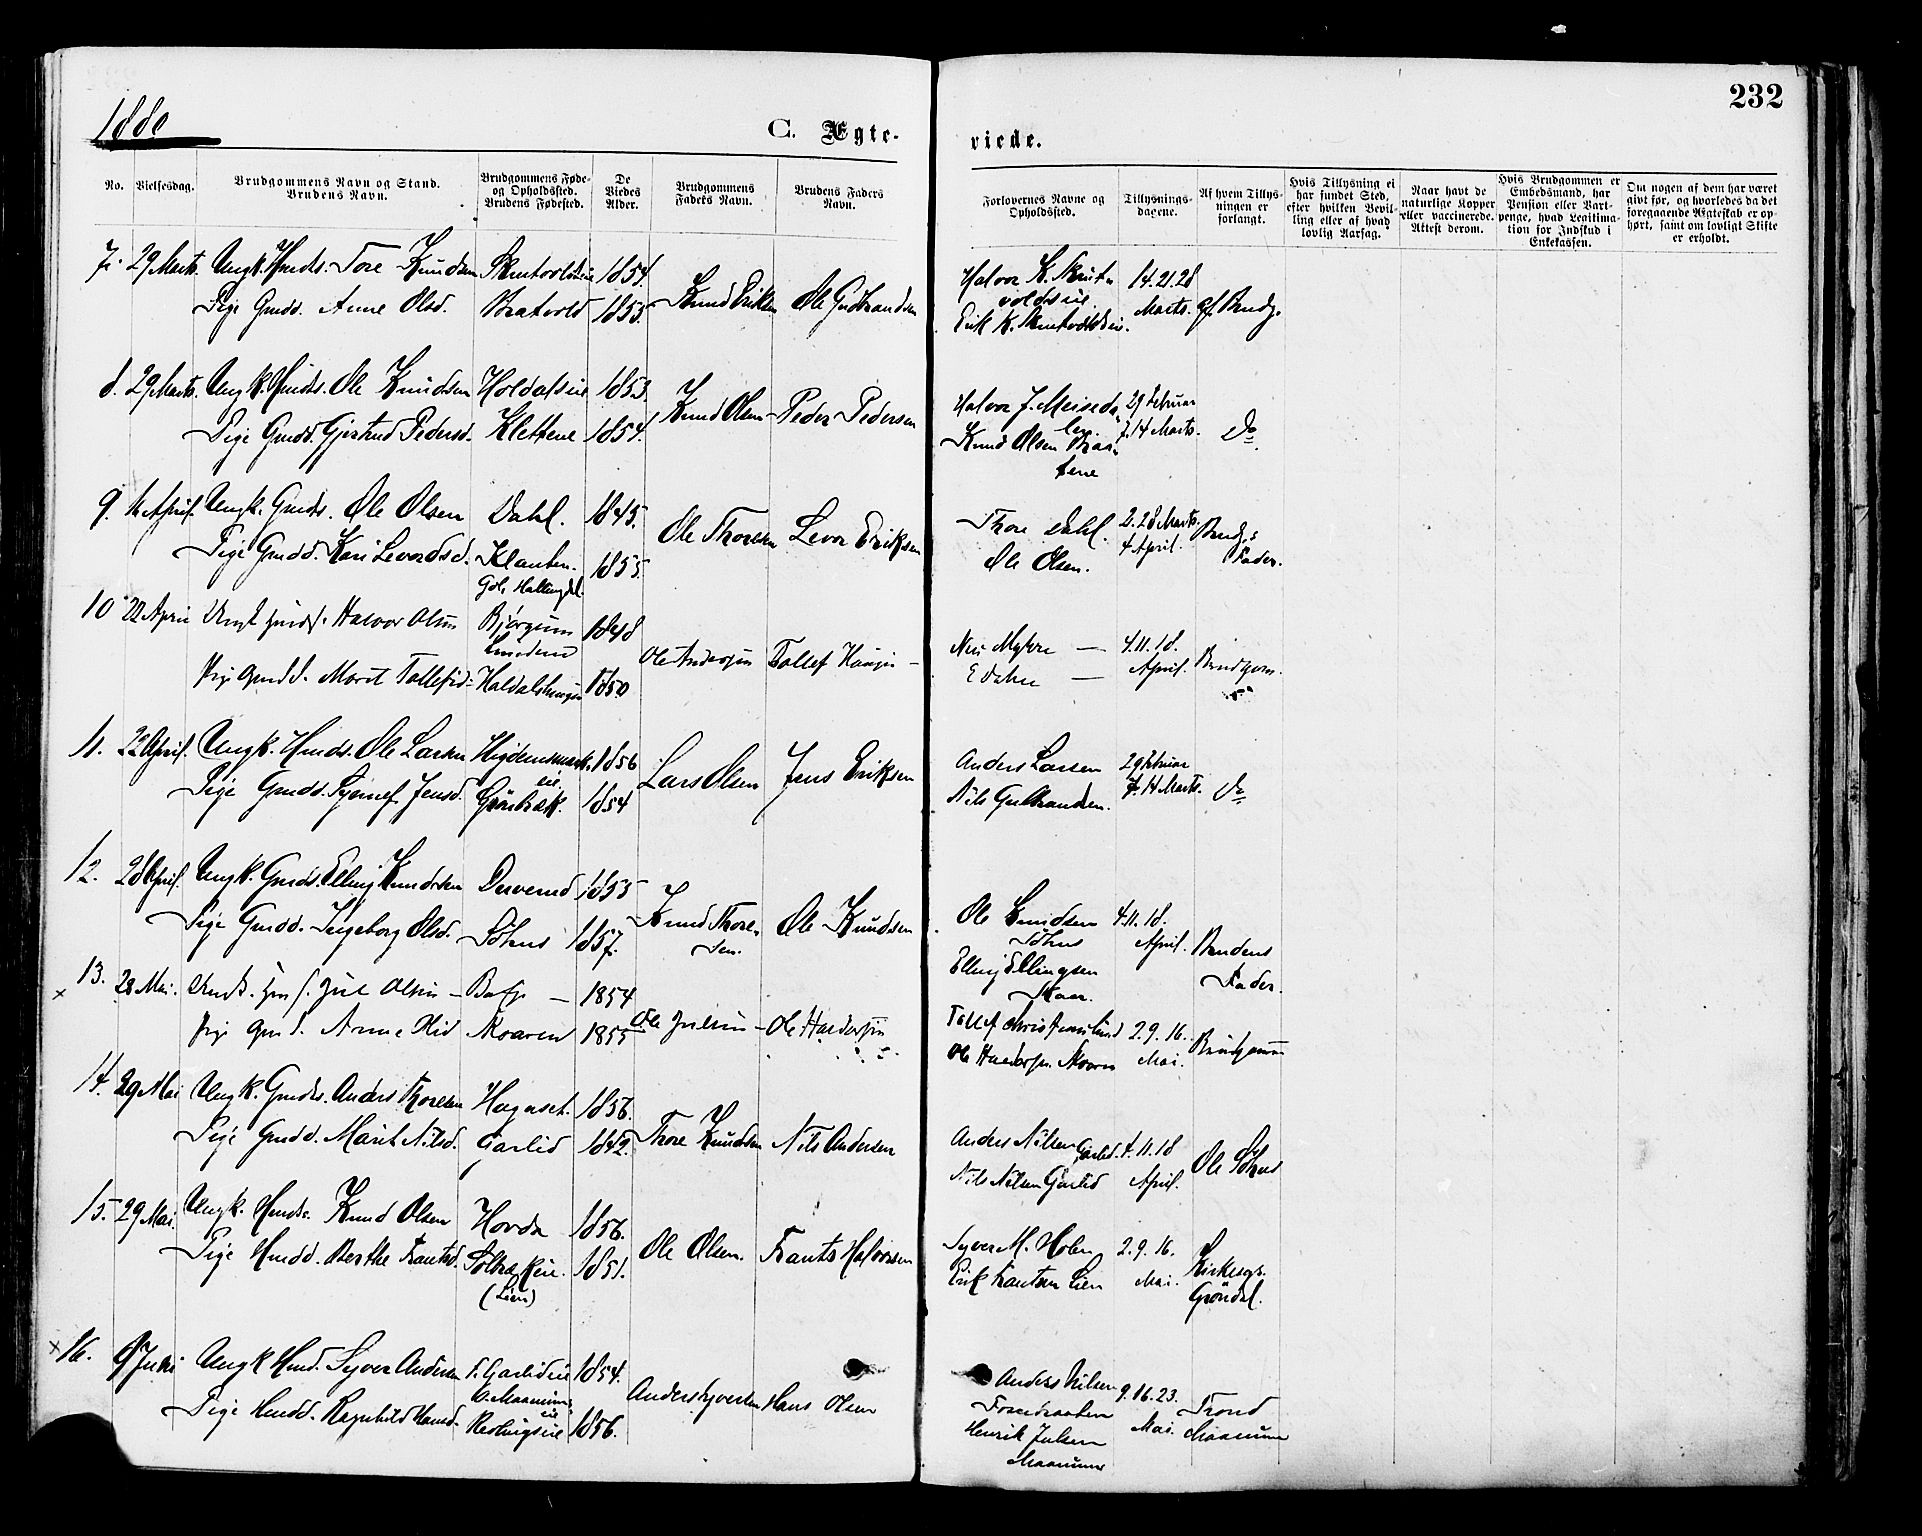 1880
C. Ægte-
viede.
232
No.
Vielsesdag.
Brudgommens Navn og Stand.
Brudens Navn.
Brudgommens Føde-
og Opholdssted.
Brudens Fødested.
De
Viedes
Alder.
Brudgommens
Faders Navn.
Brudens Faders
Navn.
Forlovernes Navne og
Opholdssted.
Tillysnings-
dagene.
Af hvem Tillys-
ningen er
forlangt.
Hvis Tillysning ei
har fundet Sted,
efter hvilken Bevil-
ling eller af hvad
lovlig Aarsag.
Naar havt de
naturlige Kopper
eller vaccinerede.
Attest derom.
Hvis Brudgommen er
Embedsmand, har
Pension eller Vart-
penge, hvad Legitima-
tion for Indskud i
Enkekassen.
Om nogen af dem har været
givt før, og hvorledes da det
foregaaende Ægteskab er op-
hørt, samt om lovligt Skifte
er erholdt.
7. 29 Marts. Ungk. Huds. Tore Knudsen 1854.
Pige Gmdd. Anne Olsd. Bratvold 1853. Knud Eriksen Ole Gudbrandsen
Halvor K. Skrut-
voldseie 14. 21. 28
Erik K. Skrutvoldseie. Marts. af Brudg.
8. 29 Marts. Ungk. Huds. Ole Knudsen Holdalseie 1853.
Pige Gmdd. Gjertrud Pedersd. Klettene 1854. Knud Olsen Peder Pedersen
Halvor J. Meiseda- 29 Februar
len. 7. 14 Marts. Do
Knud Olsen Braa-
tene
9. April. Ungk. Gmds. Ole Olsen Dahl. 1845.
Pige Gmdd. Kari Levordsd. Klanten. 1855. Ole Thoresen Levor Eriksen
Gol, Hallingdal.
Thore Dahl. 2. 28 Marts. Brudg.s
Ole Olsen. 4 April. Fader.
10 22 April Ungk Halvor Olsen Bjørgum 1848
Pige Gmdd. Marit Tollefsd. Haldalshaugen 1850
Ole Andersen Tollef Haugen
Nils Myhre 4. 11. 18.
E Dahle April. Brudgom.
11. 22 April. Ungk. Huds. Ole Larsen 1856
eie.
Pige Gmdd. Jensd. Grönbæk. 1854 Lars Olsen Jens Eriksen
Anders Larsen 29 Februar
Nils Gulbrandsen. 7. 14 Marts. Do
12. 28 April. Ungk. Gmds. Elling Knudsen 1855
Pige Gmdd. Ingeborg Olsd. Söhus 1857. Knud Thore- Ole Knudsen
sen.
Ole Knudsen 4. 11. 18.
Söhus April. Brudens
Elling Ellingsen Fader.
Skaar.
× 13. 28 Mai. Ungk. Juel Olsen 1854
Pige Anne 1855 Ole Juelsen Ole Haldorsen
Tollef Christianslund 2. 9. 16.
Ole Haldorsen Skaaren Mai. Brudgommen
14. 29 Mai Ungk. Gmds. Anders Thoresen Hagaset. 1856.
Pige Gmdd. Marit Nilsd. Garlid 1842. Thore Knudsen Nils Andersen
Anders Nilsen Garlid. 4. 11. 18
Nils Nilsen Garlid April. Ole Söhus
15. 29 Mai. Ungk. Huds. Knud Olsen Hovda 1856.
Pige Hmdd. Berthe Frantsd. Solbækeie. 1851. Ole Olsen. Frants Halvorsen
(Lien)
Syver M. Holen 2. 9. 16. Kirkesgr.
Erik Frantsen Lien Mai. Gröndal.
× 16. 9 Juni Ungk Hmd. Syver Andersen F. Garlideie 1854.
B. Maanum-
eie
Pige Hmdd. Ragnhild Hansd. 1856. Anders Syversen Hans Olsen
Anders Nilsen 9. 16. 23.
Mai. Trond
Henrik Julsen Maanum
Maanum